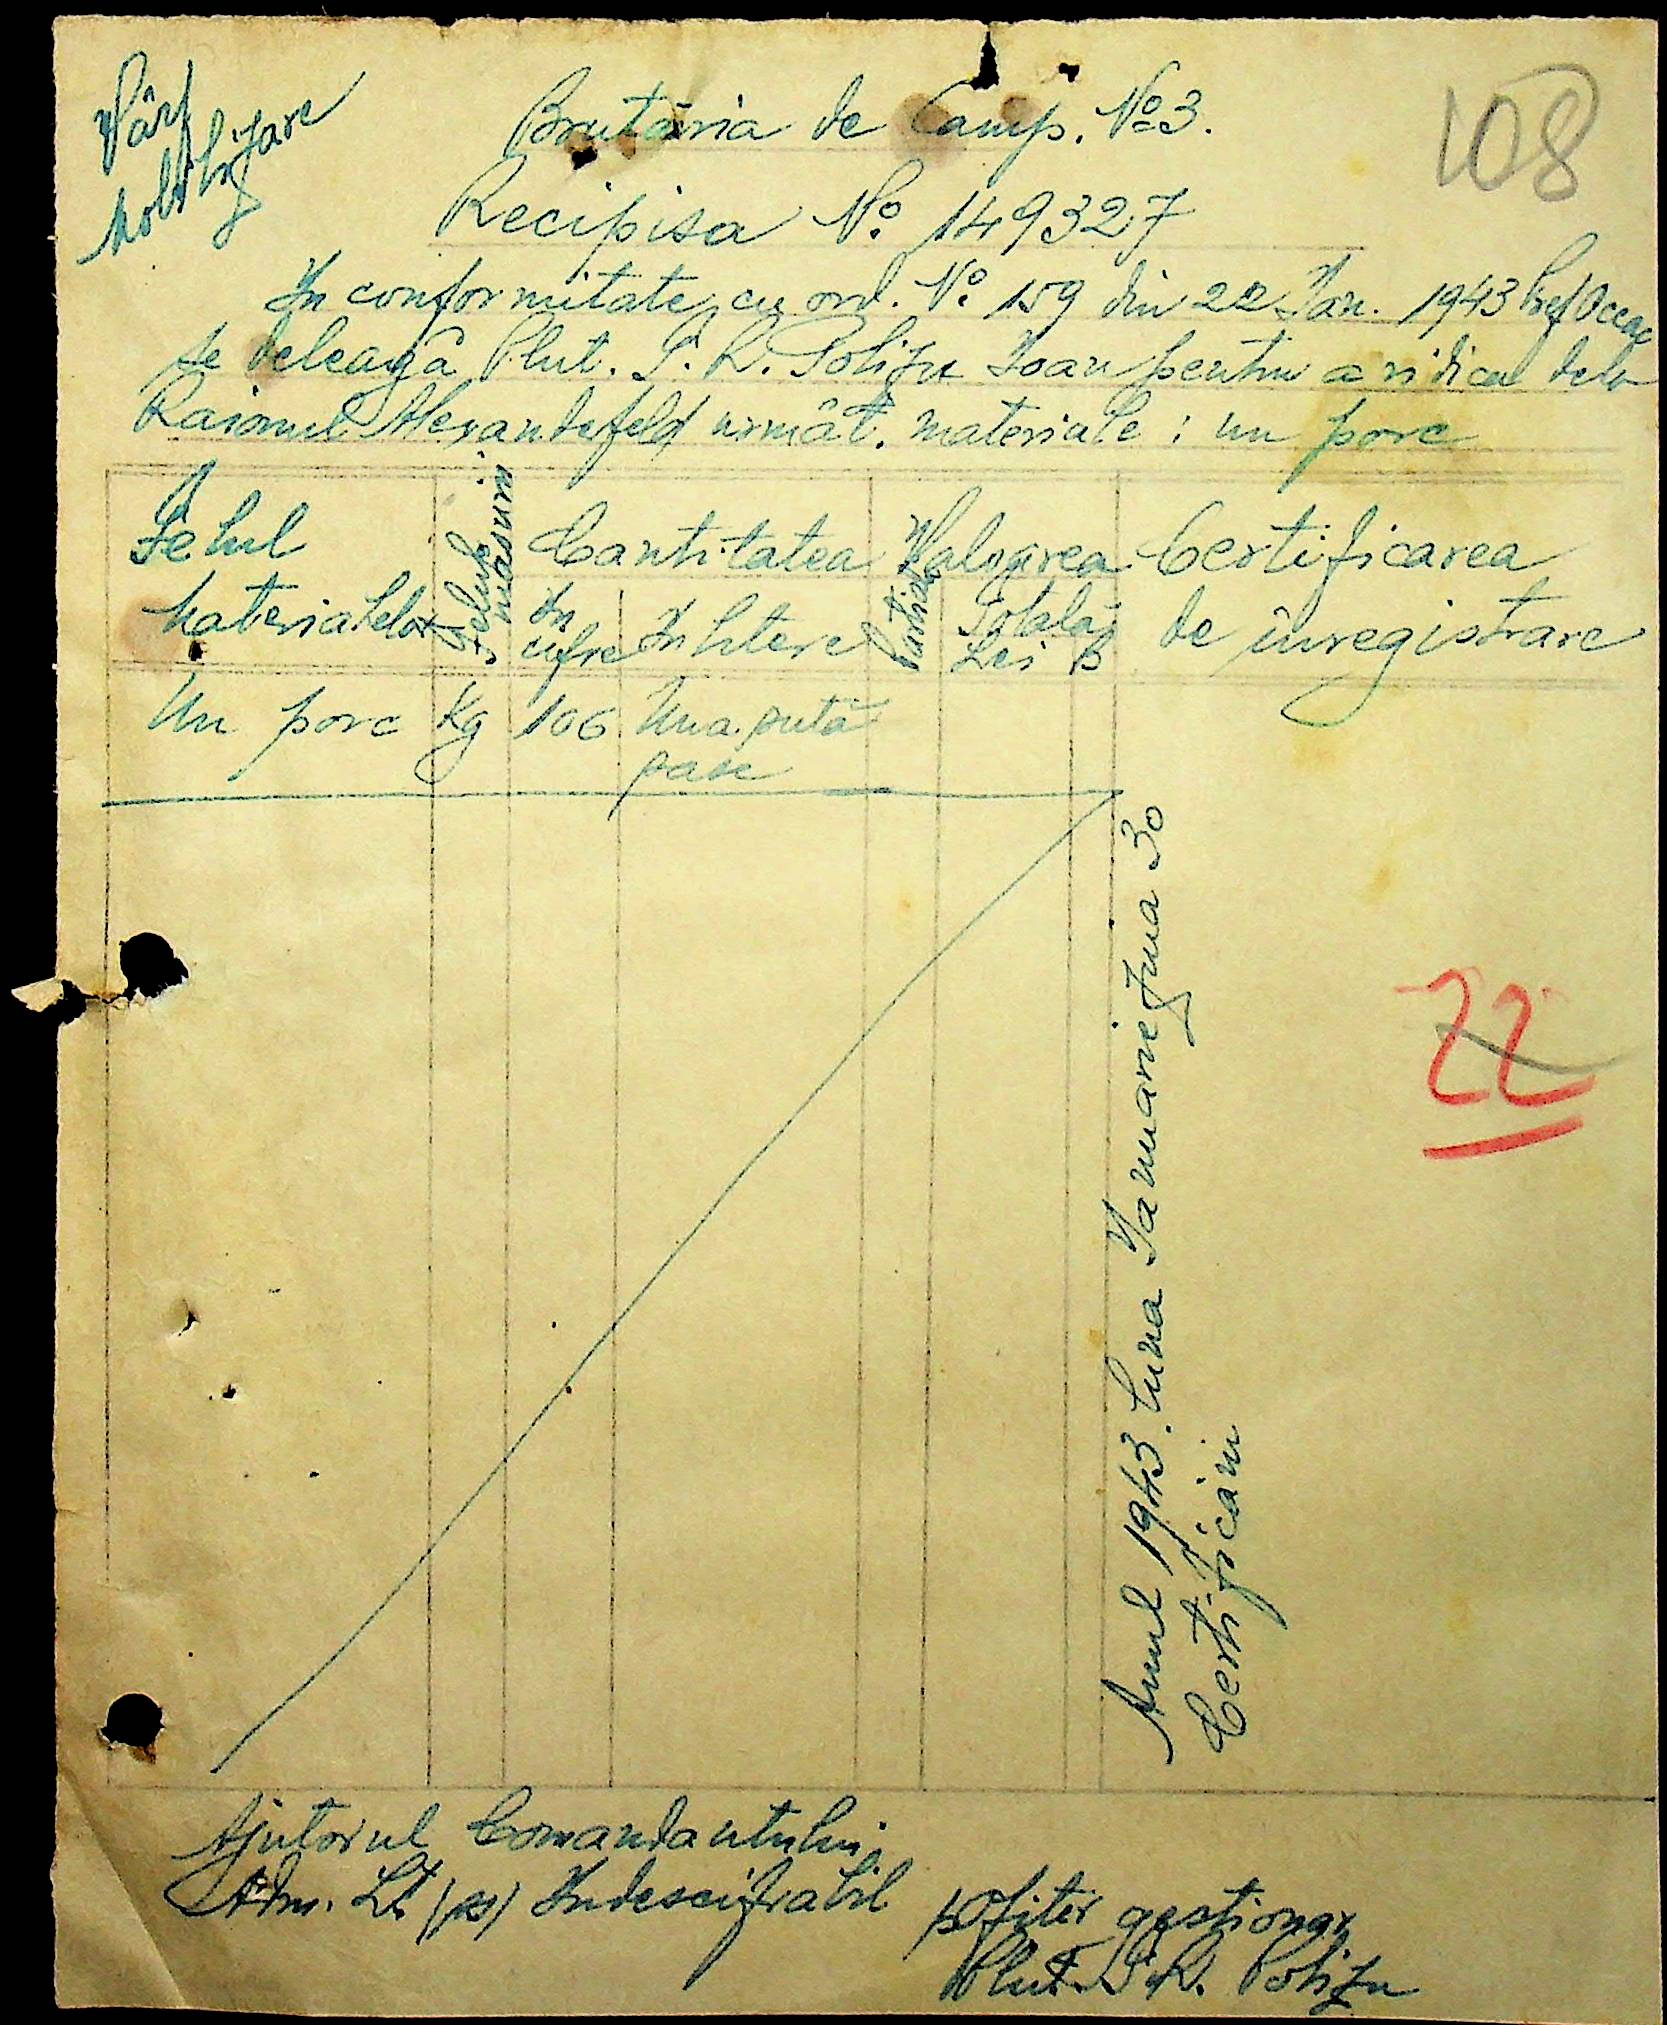 Vârf
Mobilizare
108
Brutăria de Camp. No 3.
Recipisa No. 149327
In conformitate cu ord. No. 159 din 22 Ian. 1943 Pref Oceac
se deleagă Plut. T. R. Polizu Ioan pentru a ridica dela
Raionul Alexanderfeld următ. materiale: un porc
Felul
Materialelor
Felul
măsurii
Cantitatea
In
cifre
In litere
Partida
Valoarea
Totală
Lei B
Certificarea
de înregistrare
Un porc Kg 106 Una sută
șase
Anul 1943. Luna Ianuarie Ziua 30
Certificăm
22
Ajutorul Comandantului
Adm. Lt. (ss) Indescifrabil
p. Ofiter gestionar
Plut. T. R. Polizu